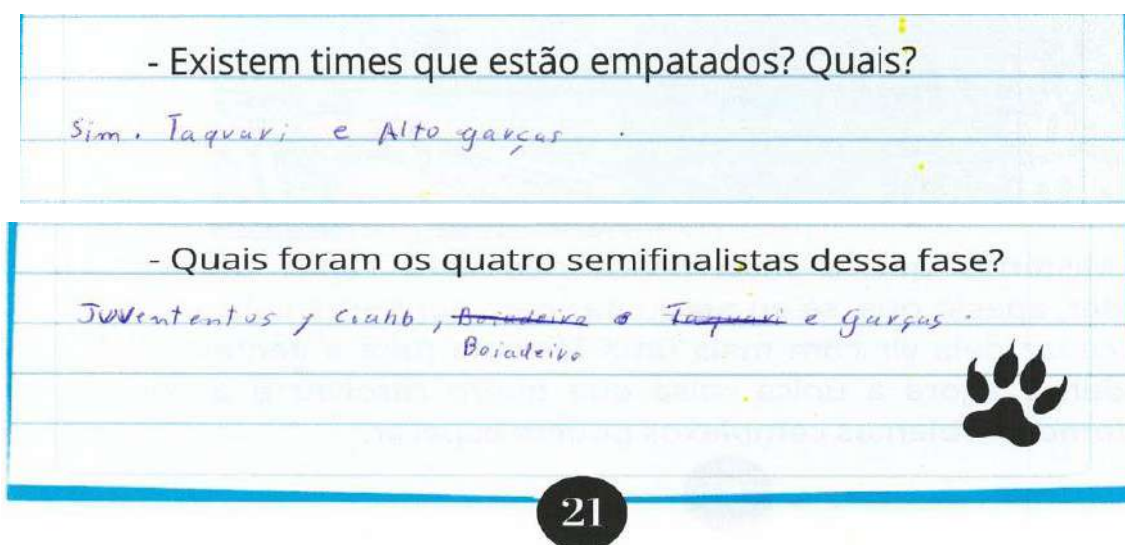 - Existem times que estão empatados? Quais?
Sim. Taquari e Alto garças.
- Quais foram os quatro semifinalistas dessa fase?
Juvententus, Couhb, Boiadeira e Taquari e Garças.
Boiadeiro
21